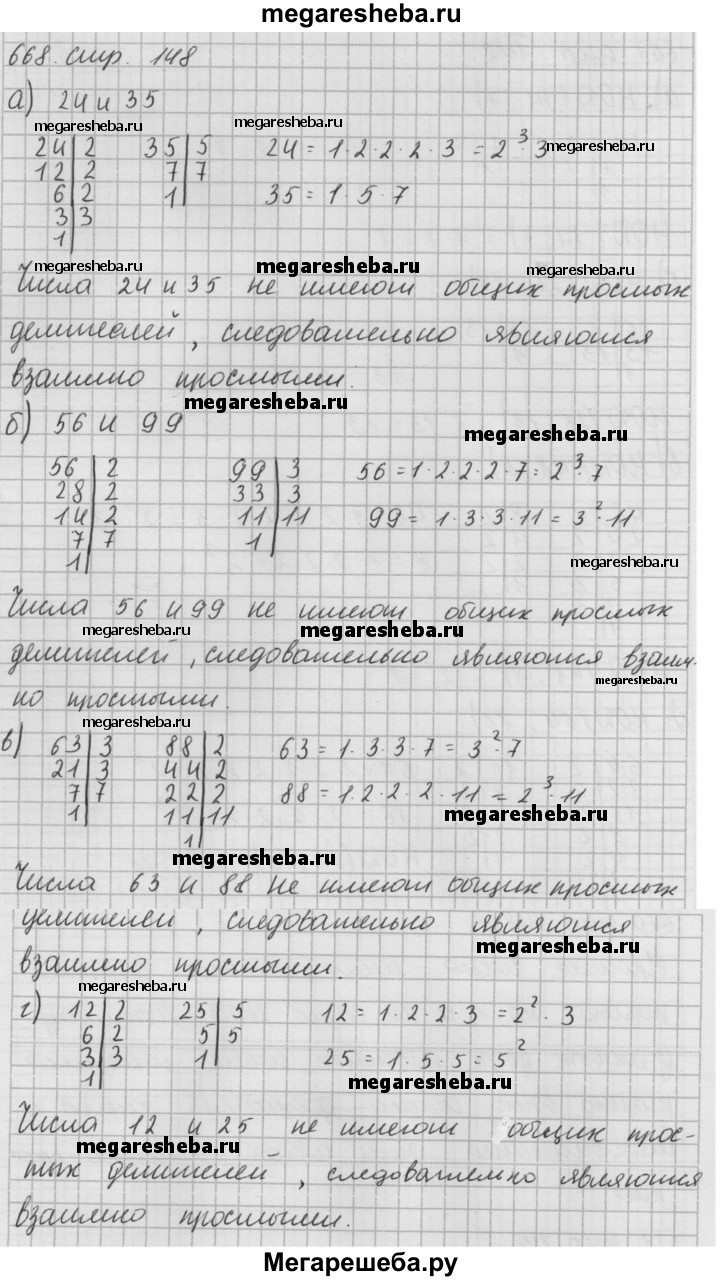 megaresheba.ru
668. стр. 148
а) 24 и 35
megaresheba.ru megaresheba.ru
24 | 2 35 | 5 24 = 1·2·2·2·3 = 2³·3 megaresheba.ru
12 | 2 7 | 7
6 | 2 1 | 35 = 1·5·7
3 | 3
1 |
megaresheba.ru megaresheba.ru megaresheba.ru
Числа 24 и 35 не имеют общих простых
делителей, следовательно являются
взаимно простыми.
megaresheba.ru
б) 56 и 99 megaresheba.ru
56 | 2 99 | 3 56 = 1·2·2·2·7 = 2³·7
28 | 2 33 | 3
14 | 2 11 | 11 99 = 1·3·3·11 = 3²·11
7 | 7 1 |
1 | megaresheba.ru
Числа 56 и 99 не имеют общих простых
megaresheba.ru megaresheba.ru
делителей, следовательно являются взаим-
megaresheba.ru
но простыми.
megaresheba.ru
в) 63 | 3 88 | 2 63 = 1·3·3·7 = 3²·7
21 | 3 44 | 2
7 | 7 22 | 2 88 = 1·2·2·2·11 = 2³·11
1 | 11 | 11 megaresheba.ru
1 |
megaresheba.ru
Числа 63 и 88 не имеют общих простых
делителей, следовательно являются
megaresheba.ru
взаимно простыми.
megaresheba.ru
г) 12 | 2 25 | 5 12 = 1·2·2·3 = 2²·3
6 | 2 5 | 5
3 | 3 1 | 25 = 1·5·5 = 5²
1 | megaresheba.ru
Числа 12 и 25 не имеют общих прос-
megaresheba.ru
тых делителей, следовательно являются
взаимно простыми.
Мегарешеба.ру